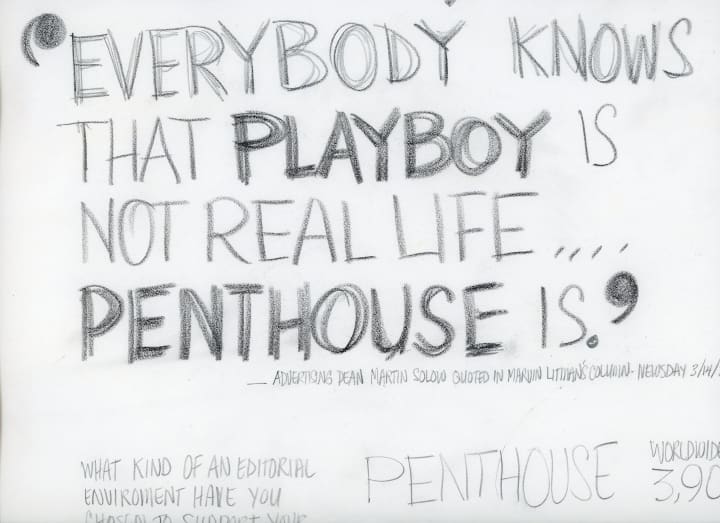 "EVERYBODY KNOWS
THAT PLAYBOY IS
NOT REAL LIFE....
PENTHOUSE IS."
— ADVERTISING DEAN MARTIN SOLOW QUOTED IN MARVIN LITMAN'S COLUMN - NEWSDAY 3/14/
WHAT KIND OF AN EDITORIAL
ENVIROMENT HAVE YOU
CHOSEN TO SUPPORT YOUR
PENTHOUSE
WORLDWIDE
3,90